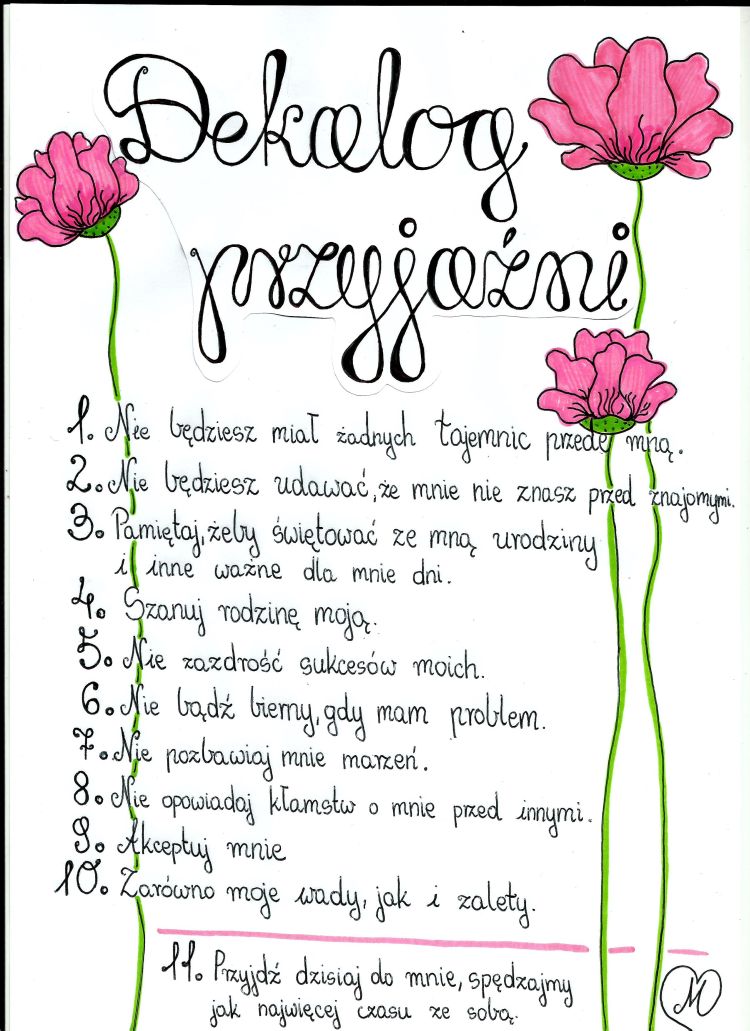 Dekalog
przyjaźni
1. Nie będziesz miał żadnych tajemnic przede mną.
2. Nie będziesz udawać, że mnie nie znasz przed znajomymi.
3. Pamiętaj, żeby świętować ze mną urodziny
i inne ważne dla mnie dni.
4. Szanuj rodzinę moją.
5. Nie zazdrość sukcesów moich.
6. Nie bądź bierny, gdy mam problem.
7. Nie pozbawiaj mnie marzeń.
8. Nie opowiadaj kłamstw o mnie przed innymi.
9. Akceptuj mnie
10. Zarówno moje wady, jak i zalety.
11. Przyjdź dzisiaj do mnie, spędzajmy
jak najwięcej czasu ze sobą.
M